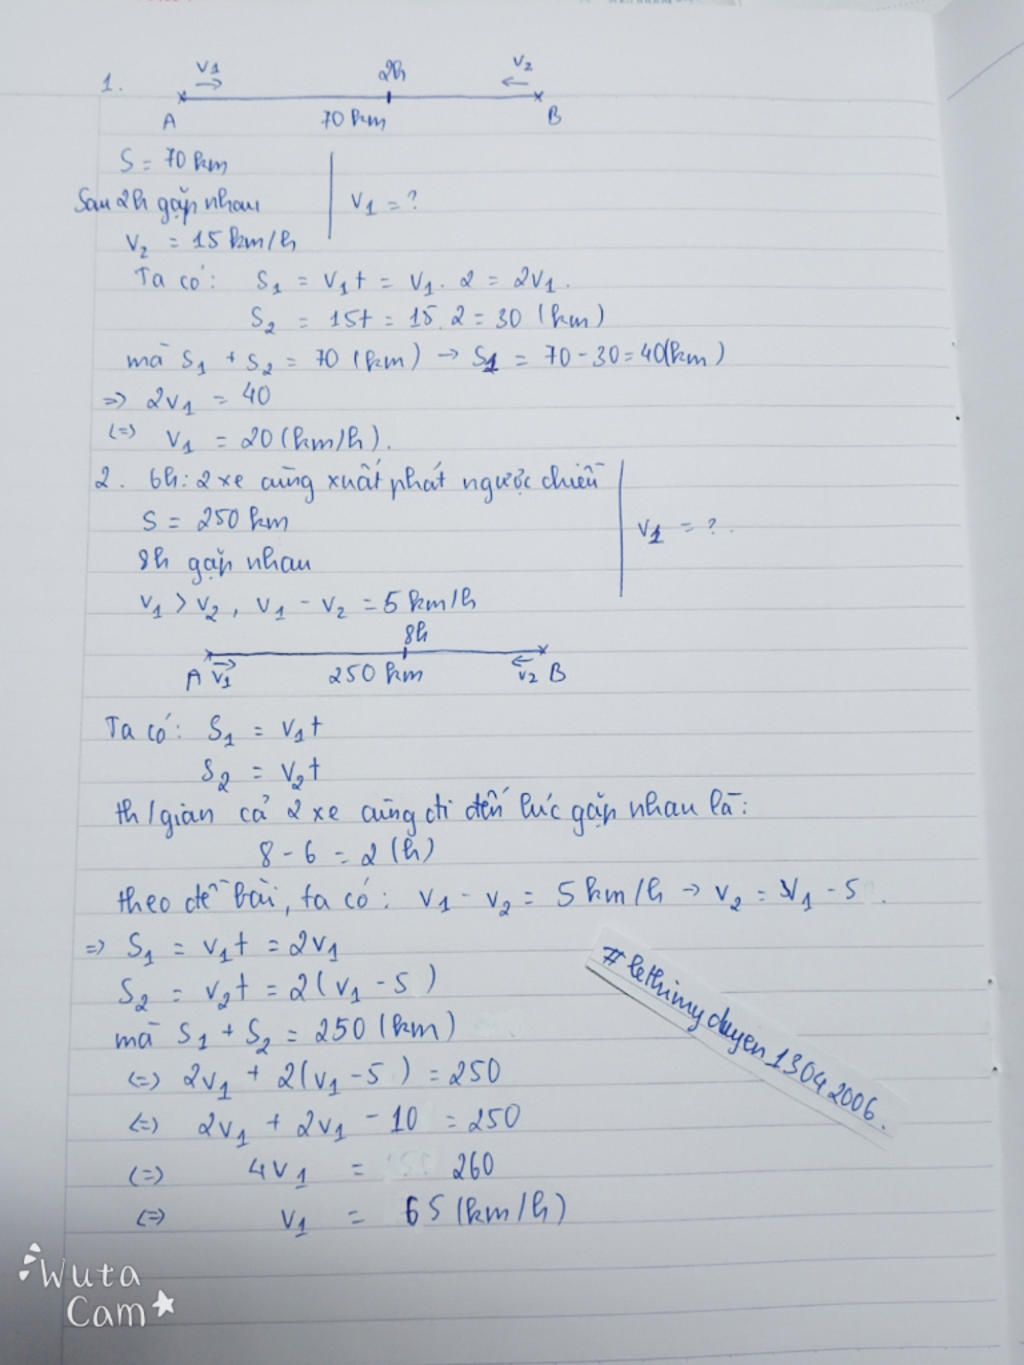 1.
v1 → 2h ← v2
A 70 km B
S = 70 km
Sau 2h gặp nhau | v1 = ?
v2 = 15 km/h
Ta có: S1 = v1t = v1. 2 = 2v1.
S2 = 15t = 15.2 = 30 (km)
mà S1 + S2 = 70 (km) → S1 = 70 - 30 = 40(km)
=> 2v1 = 40
(=) v1 = 20 (km/h).
2. 6h: 2 xe cùng xuất phát ngược chiều
S = 250 km
v1 = ?.
8h gặp nhau
v1 > v2, v1 - v2 = 5 km/h
8h
A v1 → 250 km ← v2 B
Ta có: S1 = v1t
S2 = v2t
th/gian cả 2 xe cùng đi đến lúc gặp nhau là:
8 - 6 = 2 (h)
theo đề bài, ta có: v1 - v2 = 5 km/h → v2 = v1 - 5.
=> S1 = v1t = 2v1
S2 = v2t = 2(v1 - 5)
mà S1 + S2 = 250 (km)
(=) 2v1 + 2(v1 - 5) = 250
(=) 2v1 + 2v1 - 10 = 250
(=) 4v1 = 260
(=) v1 = 65 (km/h)
# lethimyduyen13042006.
Wuta
Cam